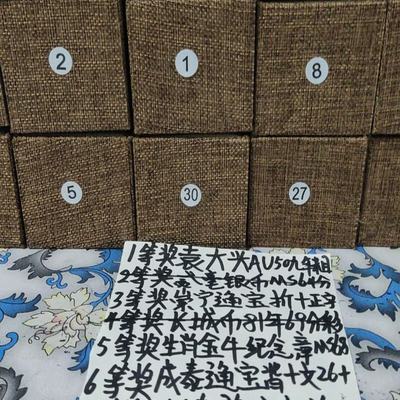 2 1 8
5 30 27
1等奖袁大头AU50九年粗
2等奖 银币MS64分
3等奖崇宁通宝折十正字
4等奖长城币81年69分
5等奖生肖金牛纪念章MS68
6等奖成泰通宝背十文26+